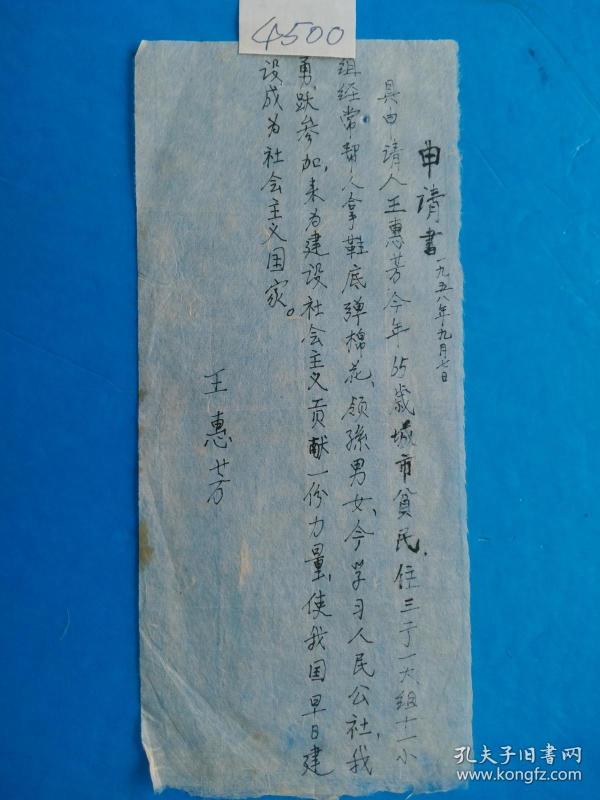 4500
申请书
一九五八年九月七日
具申请人王惠芳今年65歲城市貧民.住三于一大组十一小
组经常帮人拿鞋底弹棉花、领孫男女、今学习人民公社,我
勇跃参加,来为建设社会主义贡献一份力量,使我国早日建
设成为社会主义国家。
王惠芳
孔夫子旧书网
www.kongfz.com